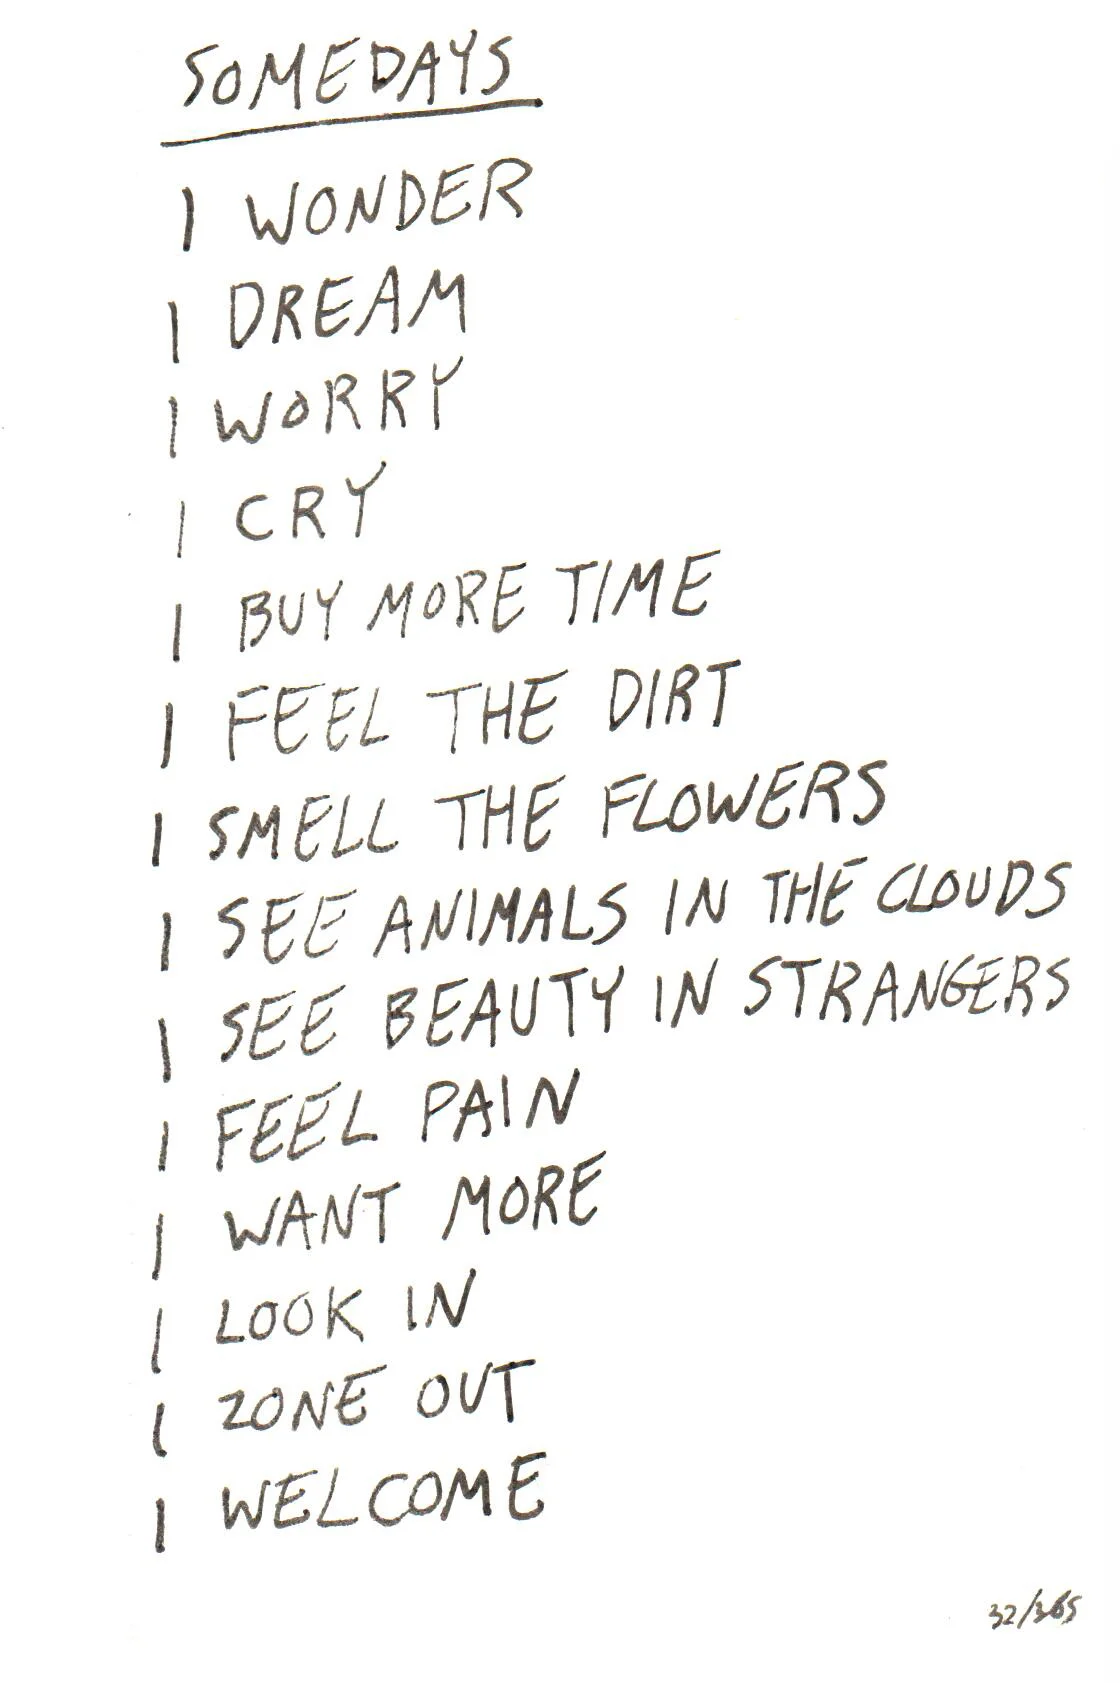 SOMEDAYS
I WONDER
I DREAM
I WORRY
I CRY
I BUY MORE TIME
I FEEL THE DIRT
I SMELL THE FLOWERS
I SEE ANIMALS IN THE CLOUDS
I SEE BEAUTY IN STRANGERS
I FEEL PAIN
I WANT MORE
I LOOK IN
I ZONE OUT
I WELCOME
32/365